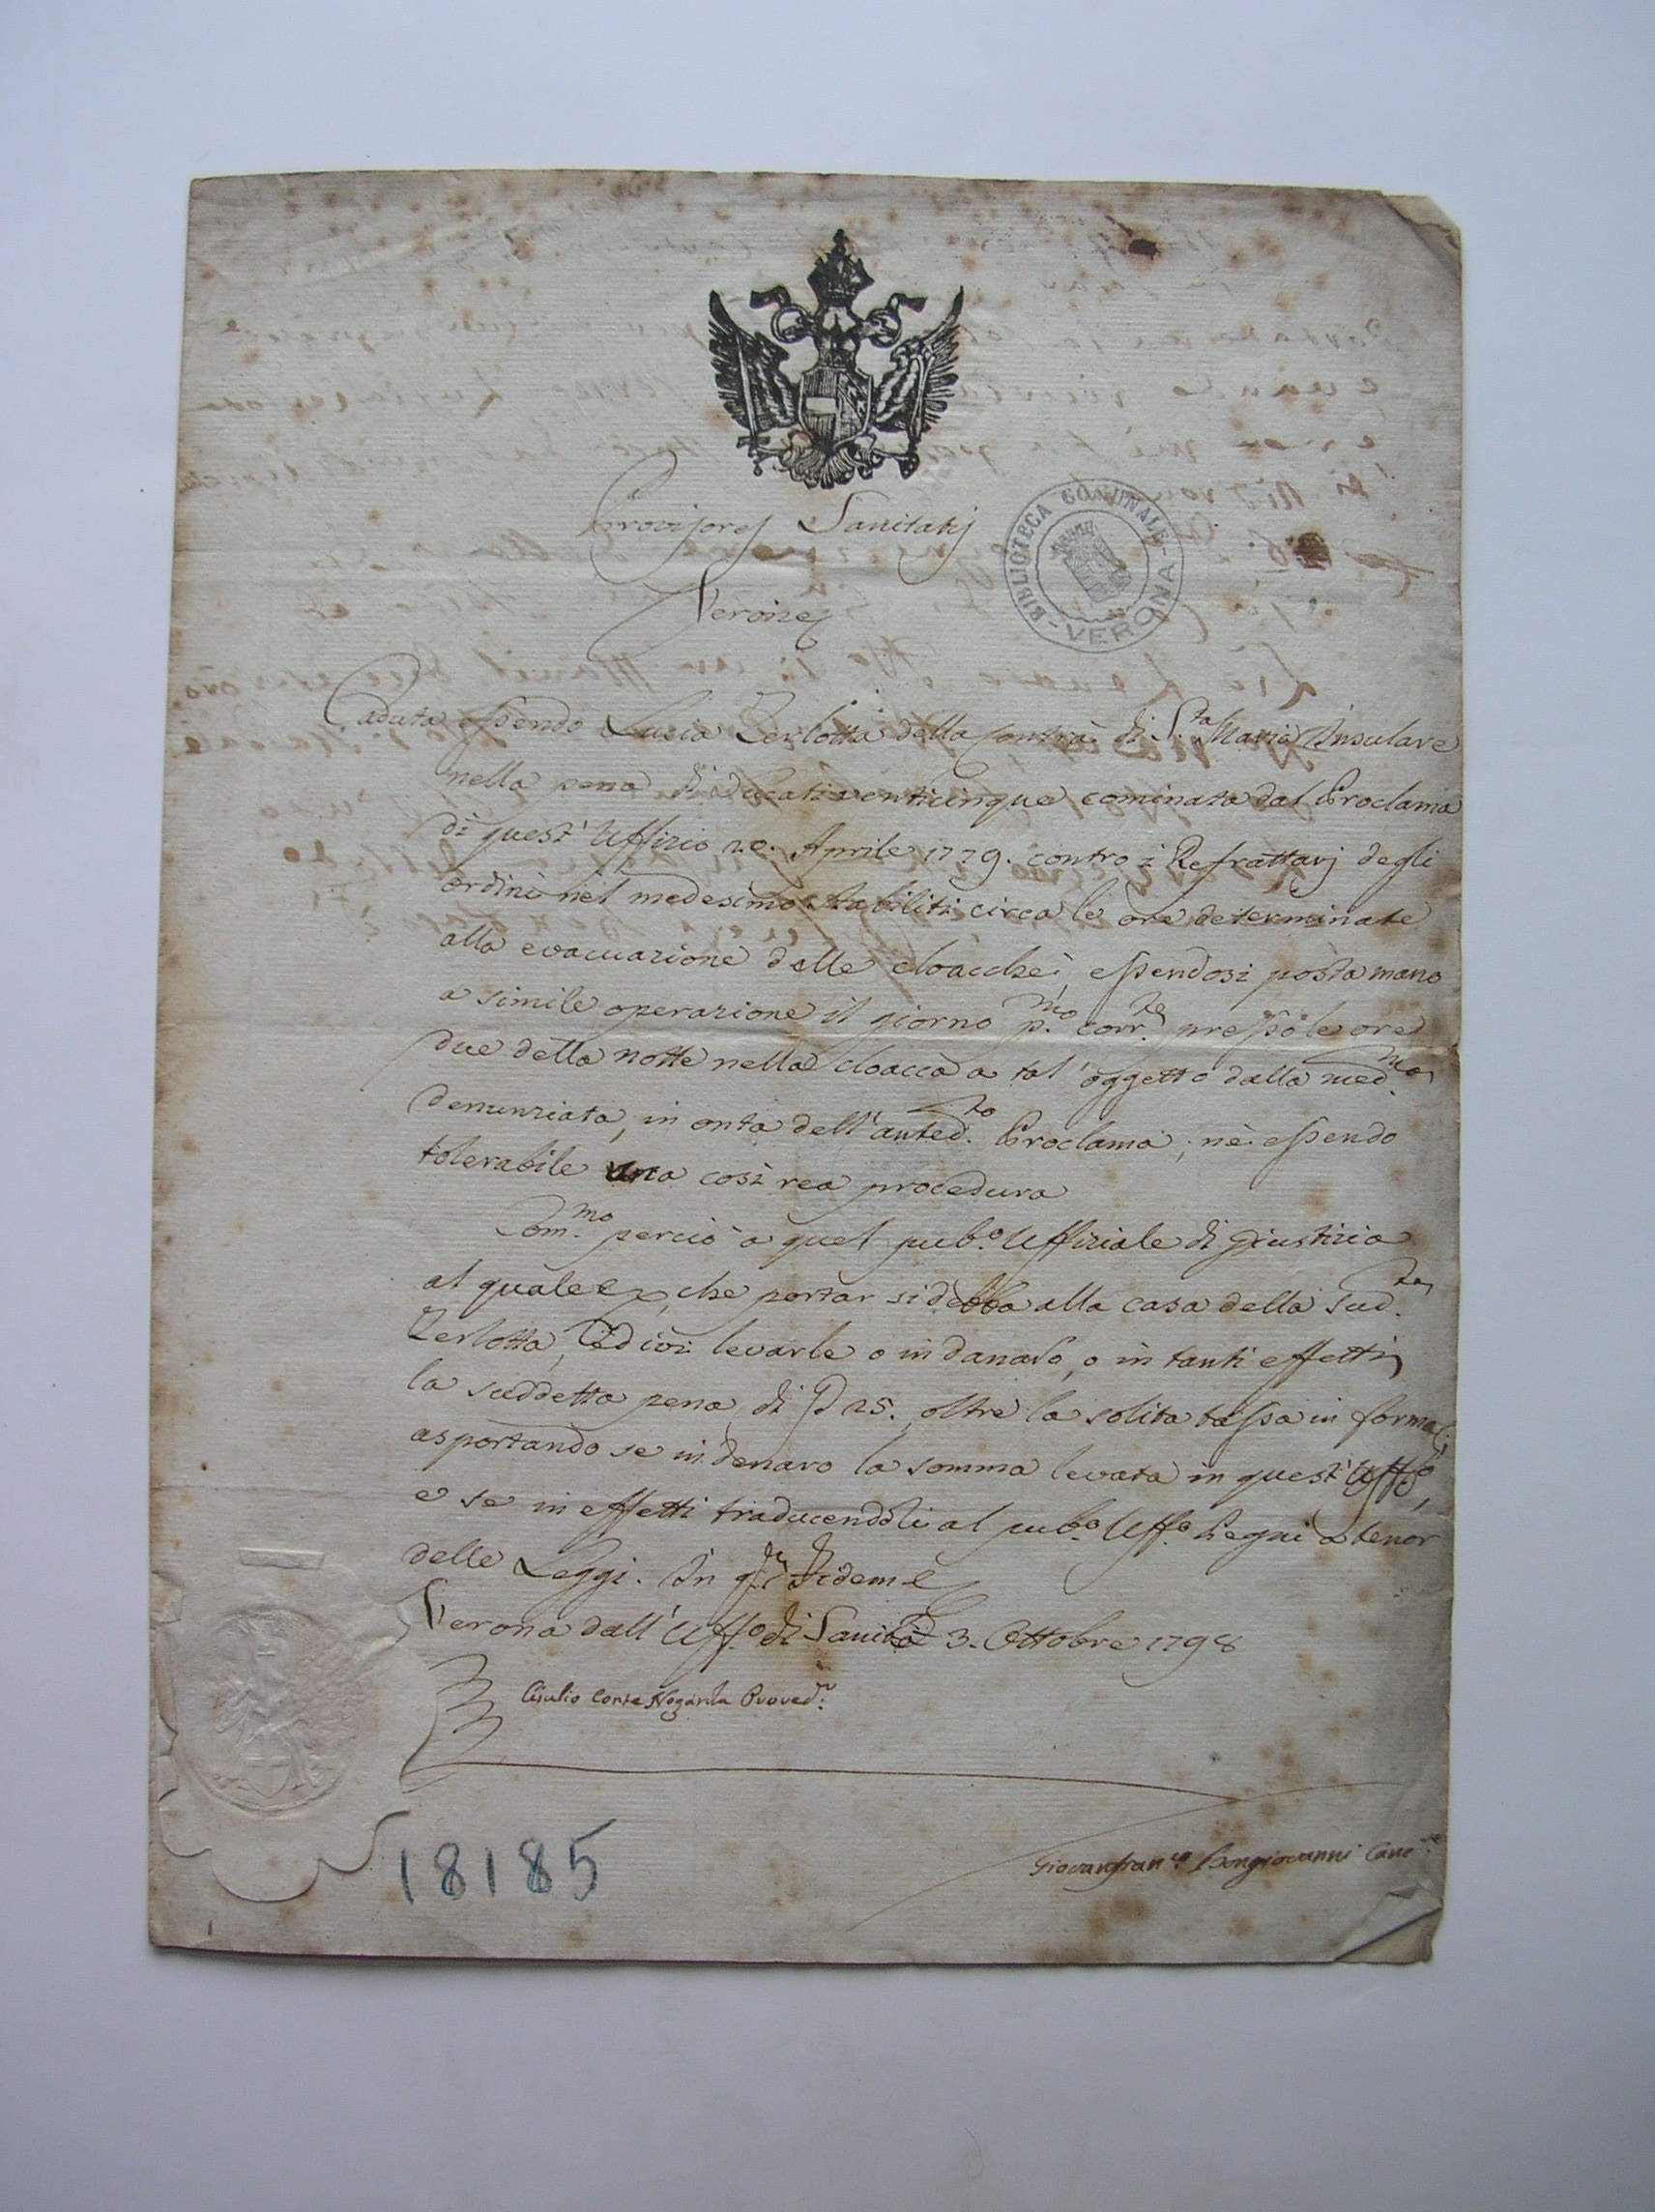 Provisores Sanitatis
BIBLIOTECA COMUNALE - VERONA -
Veronæ
Caduta essendo Lucia Zerlotta della Contrà di S.ta Maria Insulare
nella pena di ducati venticinque cominata dal Proclama
di quest' Uffizio 20. Aprile 1779. contro i Refrattarj degli
ordini nel medesimo stabiliti circa le ore determinate
alla evacuazione delle cloacche, essendosi posta mano
a simile operazione il giorno p.mo corr.te presso le ore
due della notte nella cloacca a tal' oggetto dalla med.ma
denunziata, in onta dell' anted.to Proclama, nè essendo
tolerabile una così rea procedura
Com.mo perciò a quel pub.o Uffiziale di Giustizia
al quale che portar si debba alla casa della sud.ta
Zerlotta, ed ivi levarle o in danaro, o in tanti effetti
la suddetta pena di d 25. oltre la solita tassa in forma;
asportando se in denaro la somma levata in quest' Uff.o,
e se in effetti traducendoli al pub.o Uff.o Pegni a tenor
delle Leggi. In q.r Fidem
Verona dall' Uff.o di Sanità 3. Ottobre 1798
Giulio Conte Nogarola Proved.r
Giovanfran.co Bongiovanni Canc.re
18185